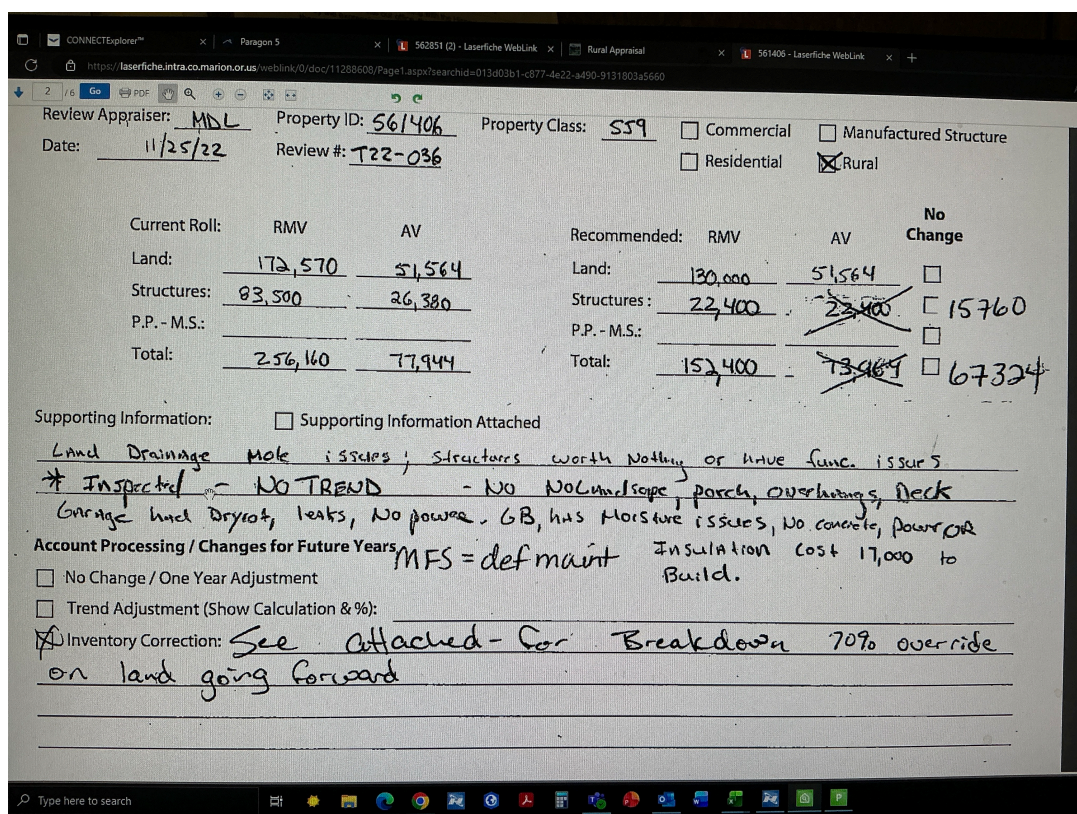 CONNECTExplorer™ × Paragon 5 × 562851 (2) - Laserfiche WebLink × Rural Appraisal × 561406 - Laserfiche WebLink × +
https://laserfiche.intra.co.marion.or.us/weblink/0/doc/11288608/Page1.aspx?searchid=013d03b1-c877-4e22-a490-9131803a5660
2 / 6 Go PDF
Review Appraiser: MDL Property ID: 561406 Property Class: 559 Commercial Manufactured Structure
Date: 11/25/22 Review #: T22-036 Residential Rural
No
Current Roll: RMV AV Recommended: RMV AV Change
Land: 172,570 51,564 Land: 130,000 51,564
Structures: 83,500 26,380 Structures: 22,400 22,400 15760
P.P. - M.S.: P.P. - M.S.:
Total: 256,160 77,944 Total: 152,400 73,964 67324
Supporting Information: Supporting Information Attached
Land Drainage Mole issues; structures worth Nothing or have func. issues
* Inspected - NO TREND - No NoLandscape, porch, overhangs, Deck
Garage had Dryrot, leaks, No power. GB, has Moisture issues, No concrete, power OR
Account Processing / Changes for Future Years MFS = def maint Insulation cost 17,000 to
No Change / One Year Adjustment Build.
Trend Adjustment (Show Calculation & %):
Inventory Correction: See attached - for Breakdown 70% override
on land going forward
Type here to search